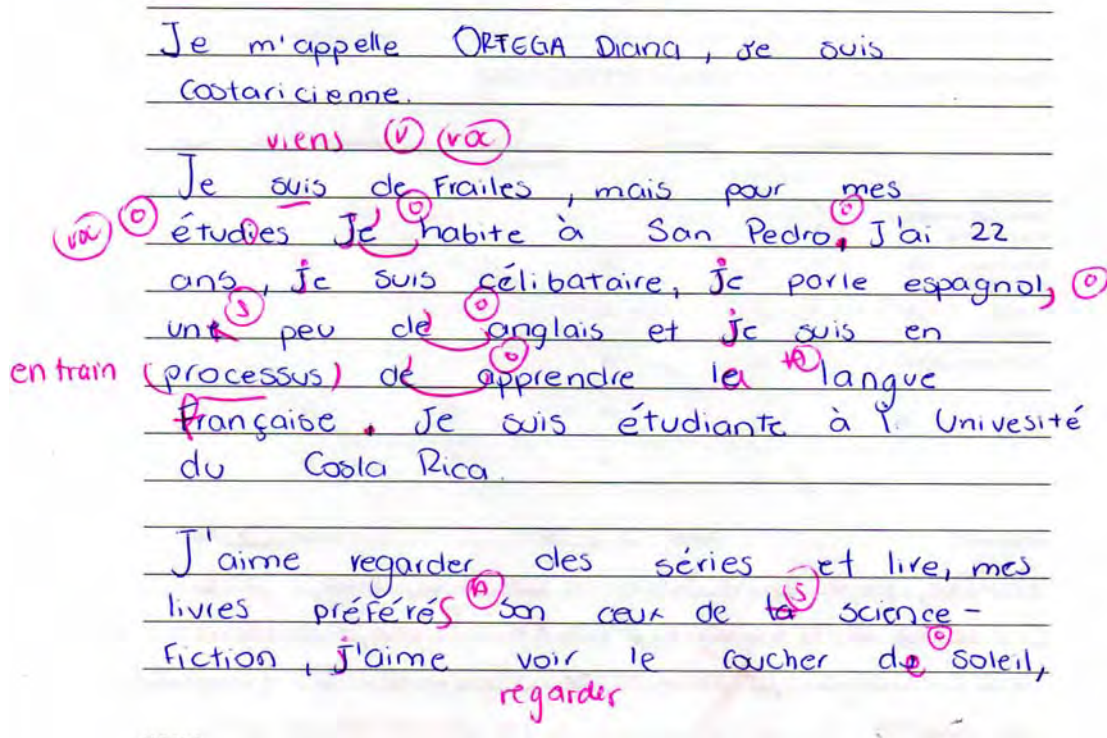 Je m'appelle ORTEGA Diana, Je suis
Costaricienne.
viens V voc
Je suis de Frailes, mais pour mes
voc O étudies Je habite à San Pedro. J'ai 22
ans, je suis célibataire, je parle espagnol, O
une peu de anglais et je suis en
en train (processus) de apprendre la langue
française. Je suis étudiante à l'Univesité
du Costa Rica.
J'aime regarder des séries et lire, mes
livres préférés son ceux de la science-
fiction, j'aime voir le coucher de soleil,
regarder